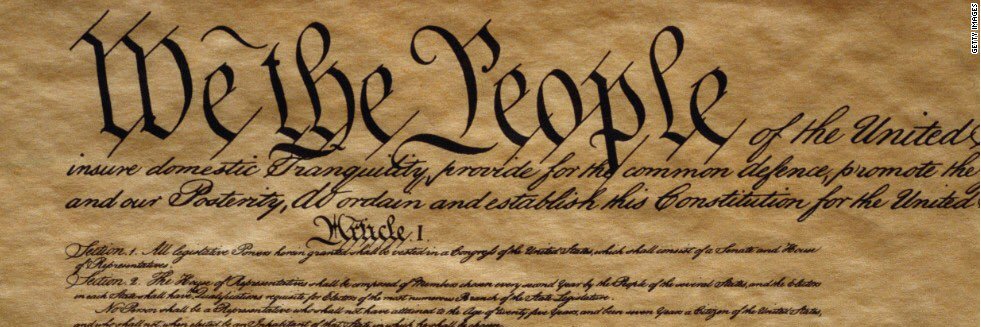 We the People of the United
insure domestic Tranquility, provide for the common defence, promote the
and our Posterity, do ordain and establish this Constitution for the United
Article. I.
Section. 1. All legislative Powers herein granted shall be vested in a Congress of the United States, which shall consist of a Senate and House
of Representatives.
Section. 2. The House of Representatives shall be composed of Members chosen every second Year by the People of the several States, and the Electors
in each State shall have the Qualifications requisite for Electors of the most numerous Branch of the State Legislature.
No Person shall be a Representative who shall not have attained to the Age of twenty five Years, and been seven Years a Citizen of the United States,
and who shall not, when elected, be an Inhabitant of that State in which he shall be chosen.
GETTY IMAGES